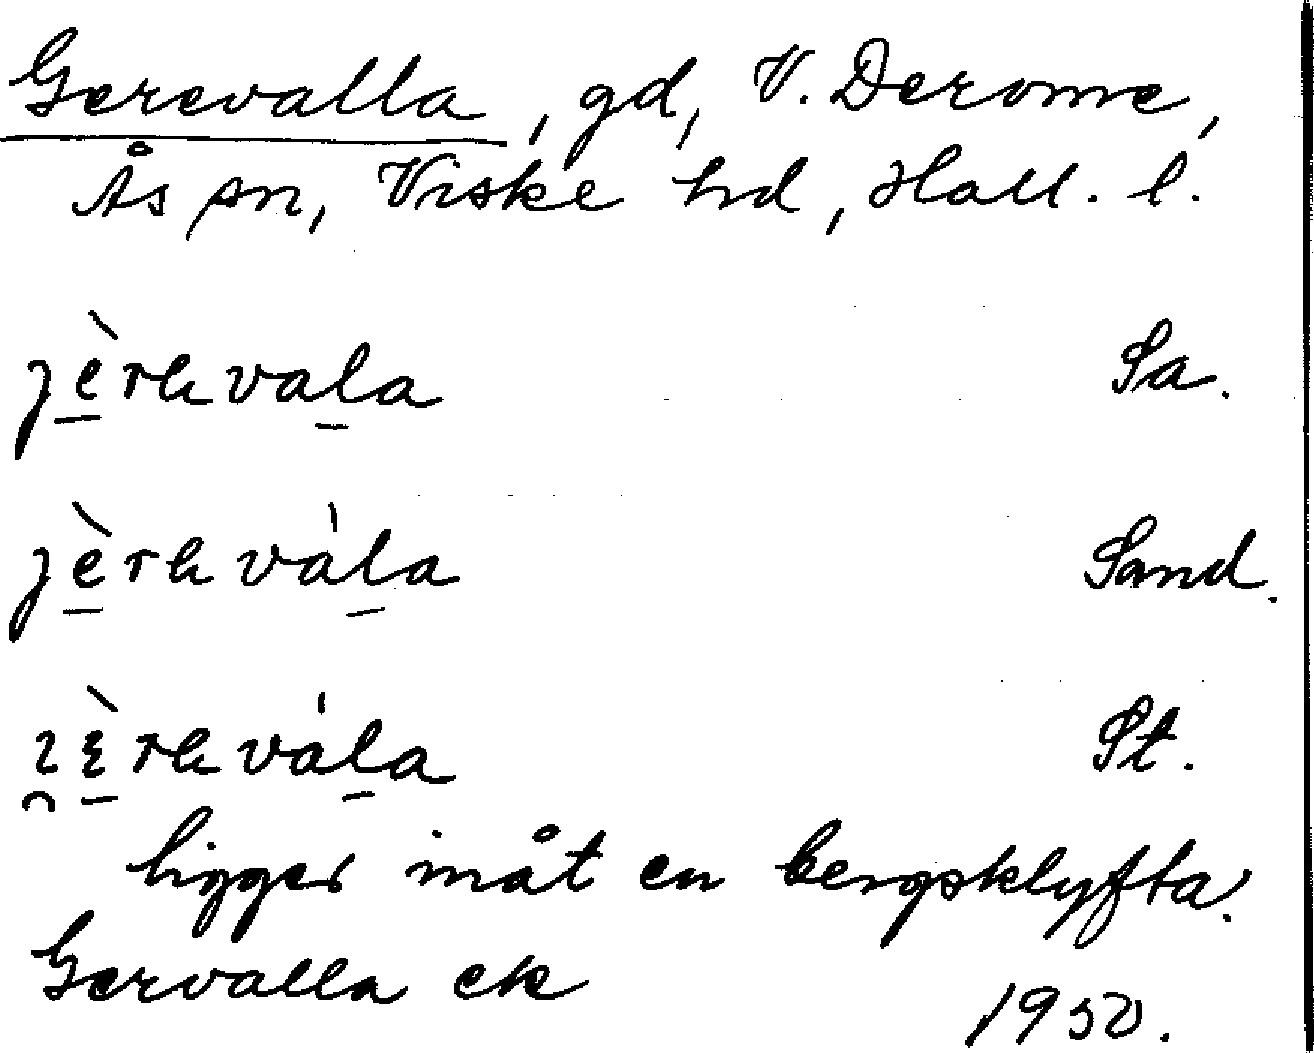 Gerevalla, gd, V. Derome,
Ås sn, Viske hd, Hall. l.
jèrevala Sa.
jèrevála Sand.
ı̯ɛ̀revála St.
ligger inåt en bergsklyfta.
Gervalla ek 1950.